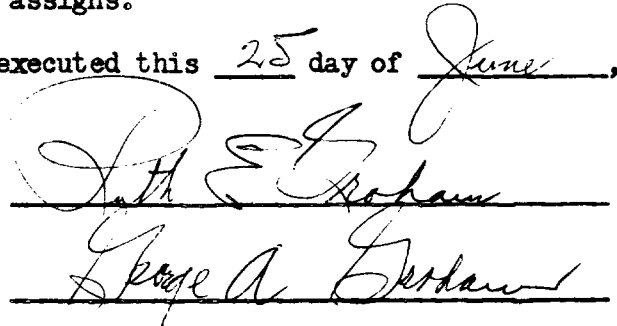 assigns.
executed this 25 day of June,
Ruth E Graham
George A Graham